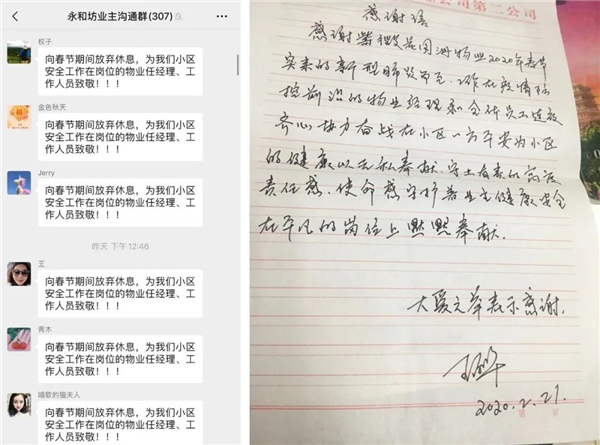 永和坊业主沟通群(307)
权子
向春节期间放弃休息，为我们小区
安全工作在岗位的物业任经理、工
作人员致敬！！！
金色秋天
向春节期间放弃休息，为我们小区
安全工作在岗位的物业任经理、工
作人员致敬！！！
Jerry
向春节期间放弃休息，为我们小区
安全工作在岗位的物业任经理、工
作人员致敬！！！
昨天 下午12:46
王
向春节期间放弃休息，为我们小区
安全工作在岗位的物业任经理、工
作人员致敬！！！
青木
向春节期间放弃休息，为我们小区
安全工作在岗位的物业任经理、工
作人员致敬！！！
唱歌的猫夫人
向春节期间放弃休息，为我们小区
安全工作在岗位的物业任经理、工
作人员致敬！！！
公司第二公司
感谢语
感谢 物业2020年春节
突来的新型肺炎 工作在疫情防
控前沿的物业经理和全体员工
齐心协力奋战在小区 为小区
的健康以无私奉献 守土有责的高度
责任感、使命感守护着业主健康安全
在平凡的岗位上默默奉献.
表示感谢.
2020.2.21.